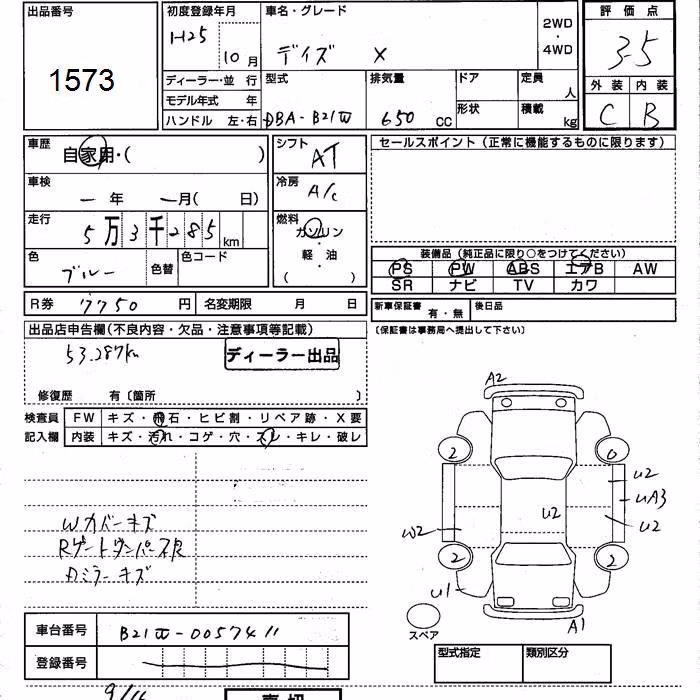 出品番号
1573
初度登録年月
H25 10月
車名・グレード
デイズ X
2WD
・
4WD
評価点
3.5
外装 内装
C B
ディーラー・並行
モデル年式 年
ハンドル 左・右
型式
DBA-B21W
排気量
650 cc
ドア
形状
定員 人
積載 kg
車歴
自家用・( )
シフト
AT
車検
年 月( 日)
冷房
A/C
走行
5万3千285km
燃料
ガソリン
・
軽油
( )
色
ブルー
色替
色コード
セールスポイント (正常に機能するものに限ります)
装備品 (純正品に限り○をつけてください)
PS PW ABS エアB AW
SR ナビ TV カワ
R券 7750円
名変期限 月 日
新車保証書 有・無
後日品
(保証書は事務局へ提出して下さい)
出品店申告欄(不良内容・欠品・注意事項等記載)
53.287km
ディーラー出品
修復歴 有〔箇所 〕
検査員
記入欄
FW キズ・飛石・ヒビ割・リペア跡・X要
内装 キズ・汚れ・コゲ・穴・スレ・キレ・破レ
Wカバーキズ
Rゲートダンパー不良
カミラーキズ
A2
2
0
U2
UA3
U2
U2
W2
2
2
U1
A1
スペア
車台番号 B21W-0057411
登録番号
型式指定 類別区分